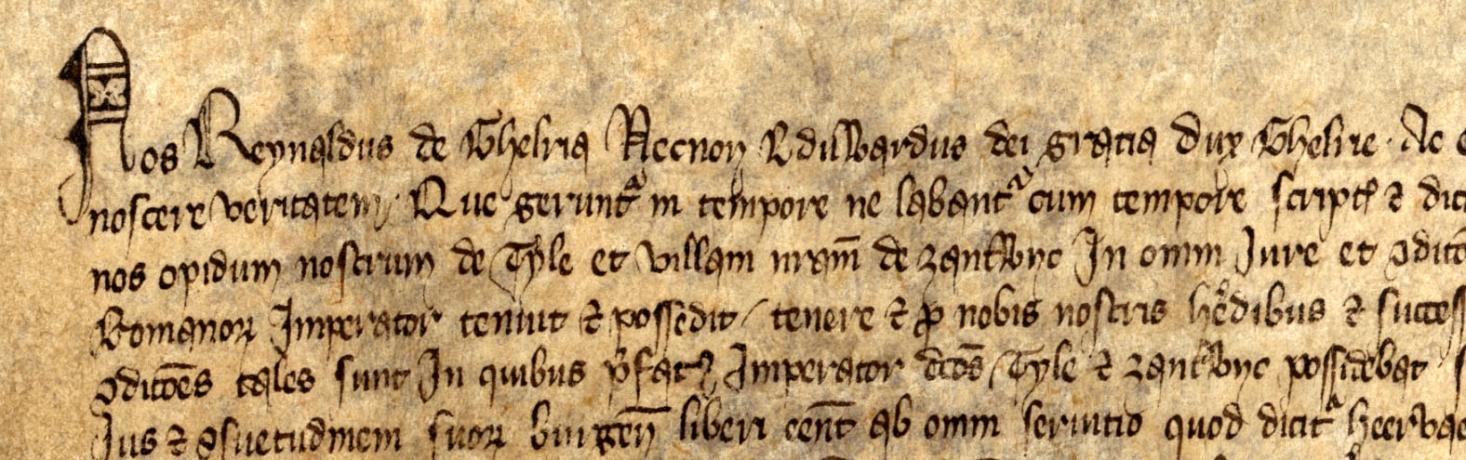 Nos Reynaldus de Ghelria Necnon Edilwardus dei gratia Dux Ghelrie. Ac
noscere veritatem. Que gerunt^r in tempore ne labant^r cum tempore script^s ⁊ dict
nos opidum nostrum de Tyle et villam nr̄am de zantwyc In omni Jure et ꝯditō
Romanoꝝ Imperator tenuit ⁊ possedit / tenere ⁊ ꝓ nobis nostris hēdibus ⁊ success
ꝯditōēs tales sunt In quibus p̄fat⁹ Imperator dc̄os Tyle ⁊ zantwyc possidebat
Jus ⁊ ꝯsuetudinem suoꝝ burgen̄ liberi eēnt ab omni seruitio quod dicit^r heervae